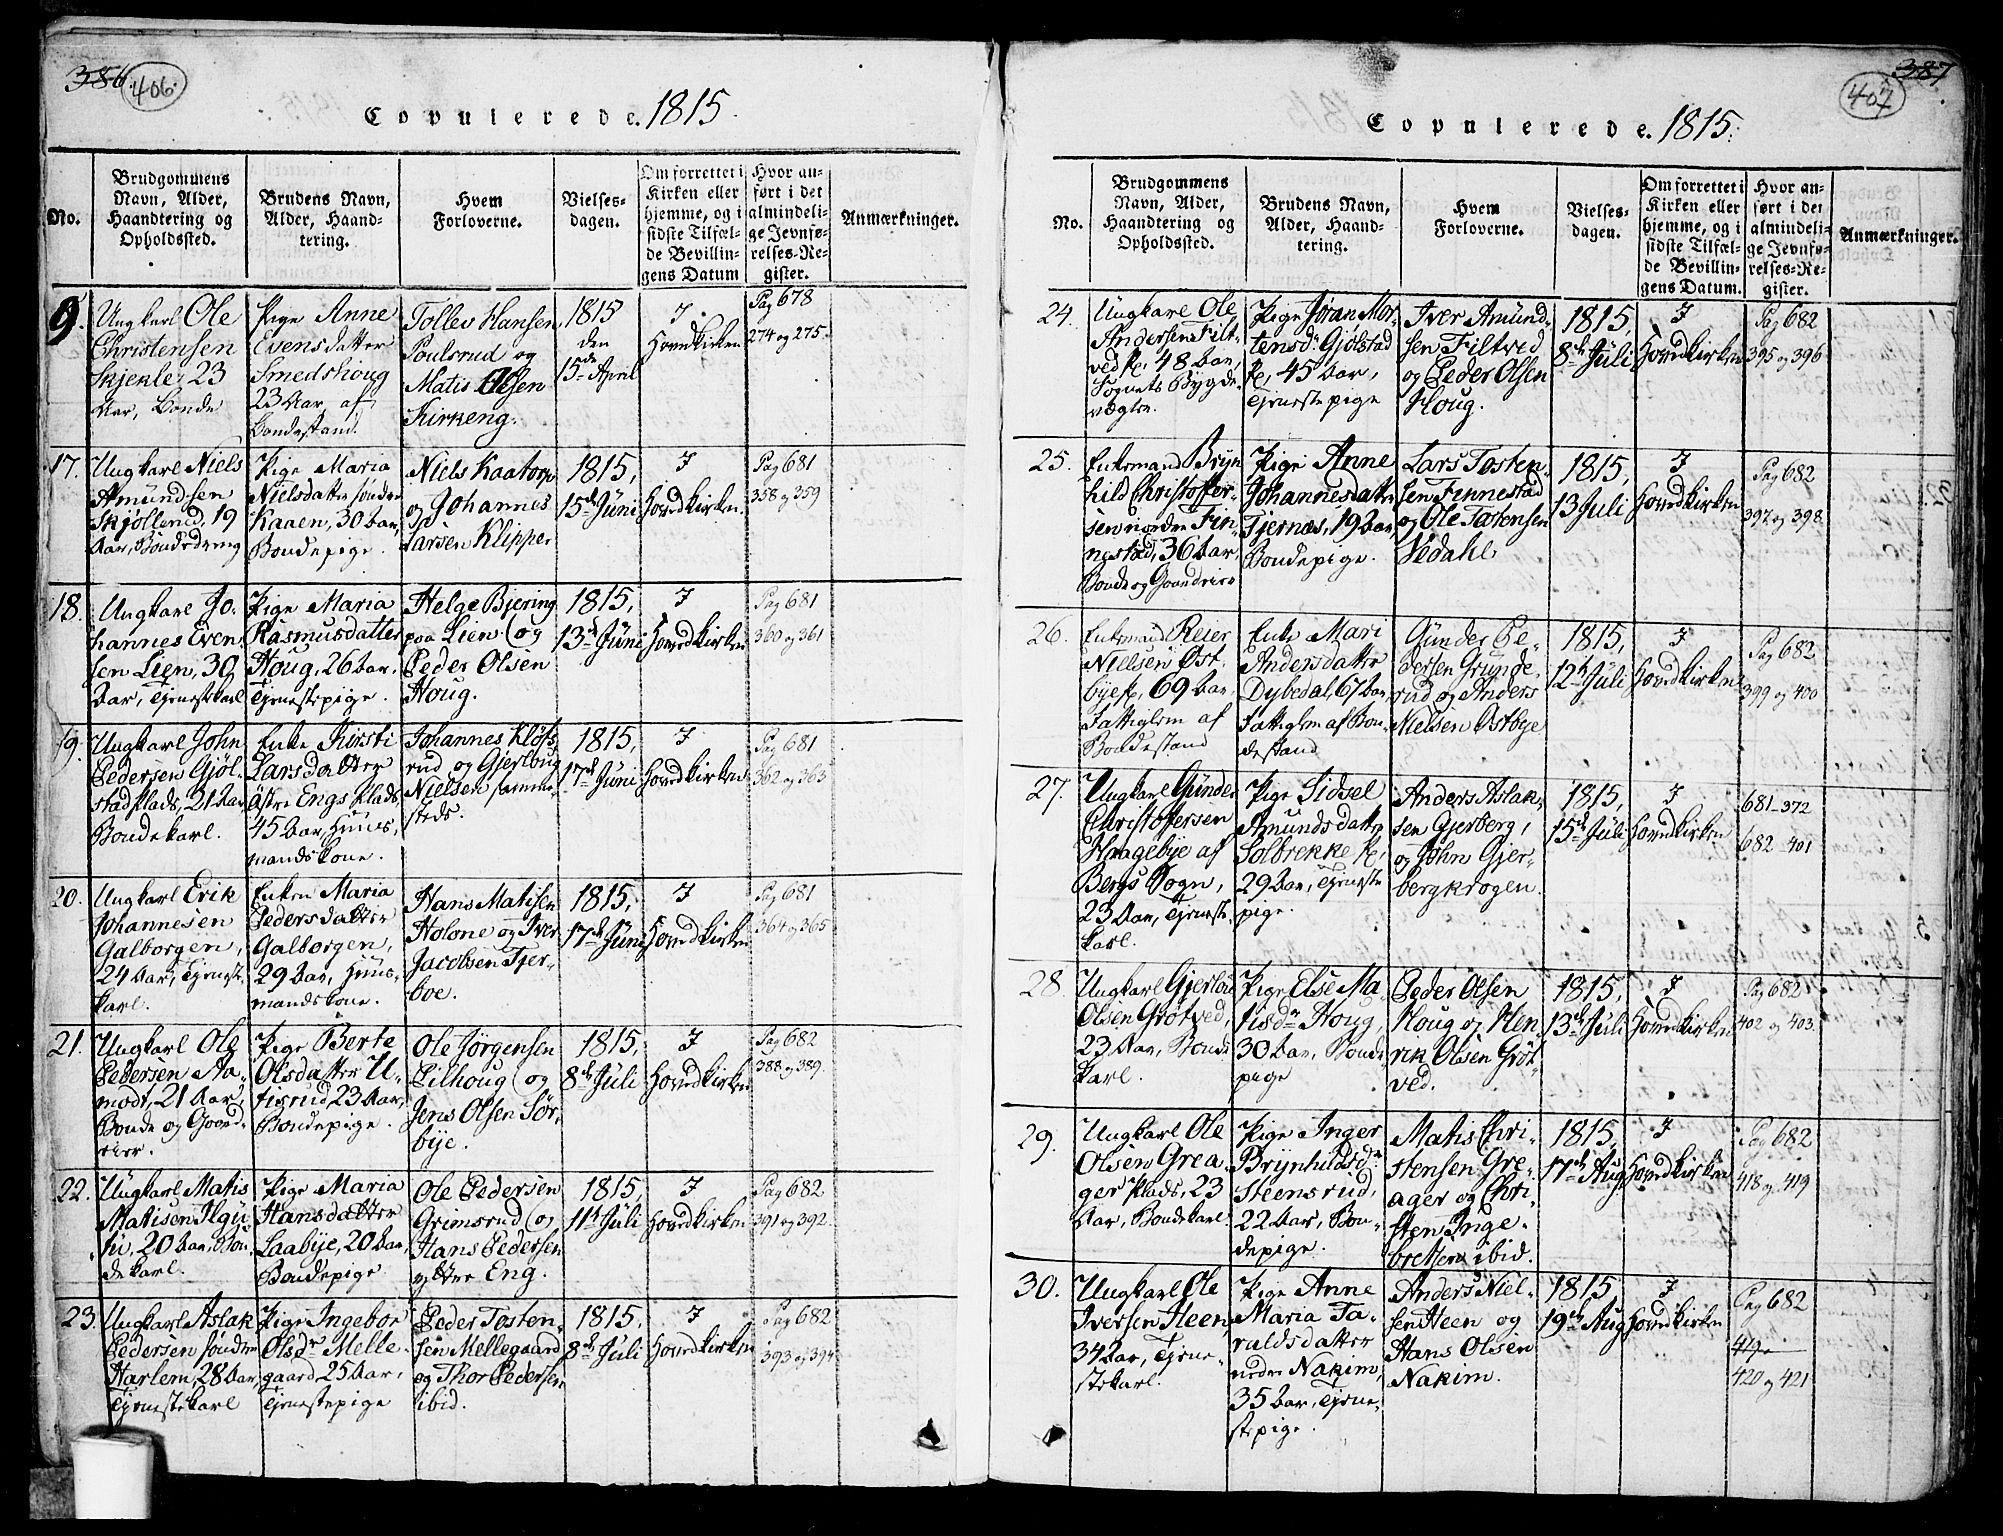 386. 406.
Copulerede. 1815.
No.
Brudgommens
Navn, Alder,
Haandtering og
Opholdssted.
Brudens Navn,
Alder, Haand-
tering.
Hvem
Forloverne.
Vielses-
dagen.
Om forrettet i
Kirken eller
hjemme, og i
sidste Tilfæl-
de Bevillin-
gens Datum
Hvor an-
ført i det
almindeli-
ge Jevnfø-
relses-Re-
gister.
Anmærkninger.
9.
Ungkarl Ole
Christensen
Skjekle 23
Aar, Bonde
Pige Anne
Evensdatter
Smedshoug
23 Aar af
Bondestand.
Tollev Hansen
Poulsrud og
Matis Olsen
Kirkeng.
1815
den
15de April
I
Hovedkirken
Pag 678
274 og 275.
17.
Ungkarl Niels
Amundsen
Skjøllerud, 19
Aar, Bondedreng
Pige Maria
Nielsdatter søndre
Kaaen, 30 Aar,
Bondepige.
Niels Kaatorp
og Johannes
Larsen Klipper
1815,
15de Juni
I
Hovedkirken.
Pag 681
358 og 359
18.
Ungkarl Jo-
hannes Even-
sen Lien, 30
Aar, Tjenestkarl
Pige Maria
Rasmusdatter
Houg, 26 Aar,
Tjenestepige.
Helge Bjering
paa Lien og
Peder Olsen
Houg.
1815,
13de Juni
I
Hovedkirken
Pag 681
360 og 361
19.
Ungkarl John
Pedersen Gjøl-
stadplads, 21 Aar
Bondekarl.
Enke Kirsti
Larsdatter
Østre Engs Plads,
45 Aar, Huus-
mandskone.
Johannes Kløfs-
rud og Gjerloug
Nielsen samme-
steds.
1815,
17de Juni
I
Hovedkirken
Pag 681
362 og 363
20.
Ungkarl Erik
Johannesen
Galborgen,
24 Aar, Tjeneste-
karl.
Enken Maria
Pedersdatter
Galborgen,
29 Aar, Huus-
mandskone.
Hans Matisen
Holone og Iver
Jacobsen Tjer-
boe.
1815,
17de Juni
I
Hovedkirken
Pag 681
364 og 365
21.
Ungkarl Ole
Pedersen Aa-
modt, 21 Aar,
Bonde og Gaard-
eier.
Pige Berte
Olsdatter U-
tisrud, 23 Aar,
Bondepige.
Ole Jørgensen
Pilhoug og
Jens Olsen Sør-
bye.
1815,
8de Juli
I
Hovedkirken
Pag 682
388 og 389.
22.
Ungkarl Matis
Matisen Ilgu-
hi, 20 Aar, Bon-
dekarl.
Pige Maria
Hansdatter
Laabye, 20 Aar,
Bondepige
Ole Pedersen
Grimsrud og
Hans Pedersen
yttre Eng.
1815,
11te Juli
I
Hovedkirken
Pag 682
391 og 392.
23.
Ungkarl Aslak
Pedersen søndre
Harlem, 28 Aar,
Tjenestekarl
Pige Ingebor
Olsdr Melle-
gaard 25 Aar,
Tjenestepige
Peder Tosten-
sen Mellegaard
og Thor Pedersen
ibid.
1815.
8de Juli
I
Hovedkirken
Pag 682
393 og 394
387 407
Copulerede. 1815.
No.
Brudgommens
Navn, Alder,
Haandtering og
Opholdssted.
Brudens Navn,
Alder, Haand-
tering.
Hvem
Forloverne.
Vielses-
dagen.
Om forrettet i
Kirken eller
hjemme, og i
sidste Tilfæl-
de Bevillin-
gens Datum.
Hvor an-
ført i det
almindeli-
ge Jevnfø-
relses-Re-
gister.
Anmærkninger.
24.
Ungkarl Ole
Andersen Filt-
ved pl, 48 Aar,
Sognets Bygde-
vægter.
Pige Jøran Mor-
tensdr Gjølstad
pl, 45 Aar,
Tjenestepige
Iver Amund-
sen Filtved
og Peder Olsen
Houg.
1815,
8de Juli
I
Hovedkirken
Pag 682
395 og 396
25.
Enkemand Bryn-
hild Christoffer-
sen nordre Fin-
nestad, 36 Aar,
Bonde og Gaardeier
Pige Anne
Johannesdatter
Tjernæs, 19 Aar,
Bondepige.
Lars Tosten-
sen Finnestad
og Ole Tostensen
Nedahl
1815,
13 Juli
I
Hovedkirken
Pag 682
397 og 398.
26.
Enkemand Reier
Nielsen Øst-
bye pl, 69 Aar,
Fattiglem af
Bondestand
Enke Mari
Andersdatter
Dybedal, 67 Aar
Fattiglem af Bon-
destand
Gunder Pe-
dersen Grunde-
rud og Anders
Nielsen Østbye
1815,
12te Juli
I
Hovedkirken
Pag 682
399 og 400
27.
Ungkarl Gunder
Christoffersen
Haagebye af
Bergs Sogn,
23 Aar, Tjeneste-
karl.
Pige Sidsel
Amundsdatter
Solbrekke pl,
29 Aar, Tjeneste-
pige.
Anders Aslak-
sen Gjerberg,
og John Gjer-
bergkrogen.
1815,
15de Juli
I
Hovedkirken
681-372
682-401
28.
Ungkarl Gjerlou
Olsen Grøtved,
23 Aar, Bonde-
karl.
Pige Else Ma-
tisdr Houg,
30 Aar, Bonde-
pige
Peder Olsen
Houg og Hen-
rik Olsen Grøt-
ved.
1815,
13de Juli
I
Hovedkirken
Pag 682
402 og 403.
29.
Ungkarl Ole
Olsen Grea-
ger Plads, 23
Aar, Bondekarl
Pige Inger
Brynhildsdr
Steensrud,
22 Aar, Bon-
depige.
Matis Chri-
stensen Gre-
ager og Chri-
sten Inge-
bretsen ibid.
1815,
17de Aug
I
Hovedkirken
Pag 682
418 og 419
30.
Ungkarl Ole
Iversen Heen,
34 Aar, Tjene-
stekarl.
Pige Anne
Maria Ta-
raldsdatter
nedre Nakim,
35 Aar, Tjene-
stepige.
Anders Niel-
sen Heen og
Hans Olsen
Nakim.
1815
19de Aug
I
Hovedkirken
Pag 682
419
420 og 421